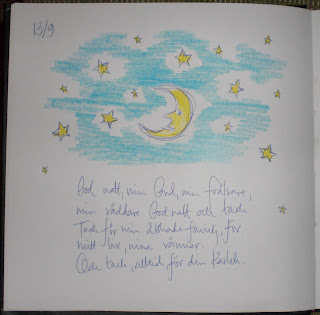 13/9
God natt, min Gud, min frälsare,
min räddare God natt och tack
Tack för min älskade familj, för
mitt liv, mina vänner.
Och tack, alltid, för din kärlek.